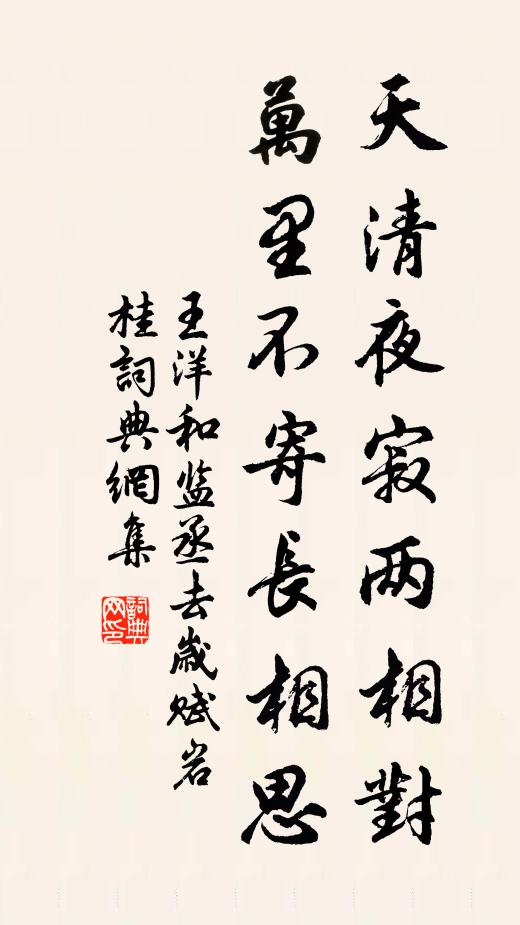 天清夜寂两相對
萬里不寄長相思
王洋和监丞去歲赋岩
桂詞典網集
詞典网印